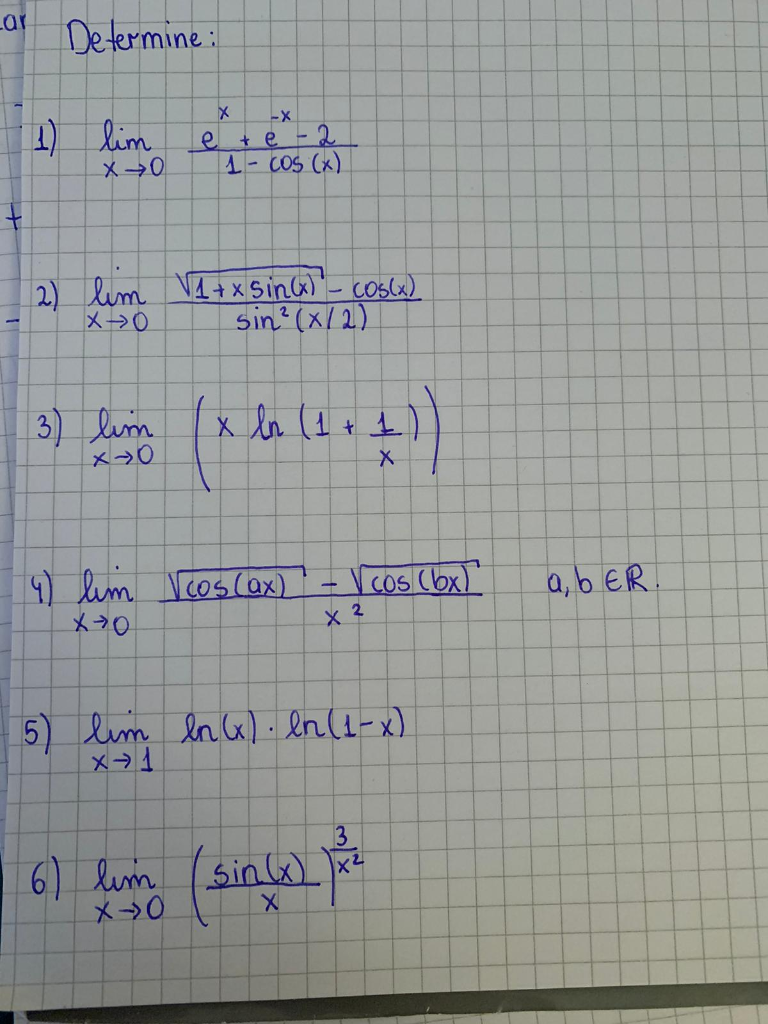 ar
Determine:
1) lim x→0 (e^x + e^-x - 2)/(1 - cos(x))
2) lim x→0 (√(1+x sin(x)) - cos(x))/(sin²(x/2))
3) lim x→0 (x ln (1 + 1/x))
4) lim x→0 (√(cos(ax)) - √(cos(bx)))/x² a,b ∈ ℝ.
5) lim x→1 ln(x) · ln(1-x)
6) lim x→0 (sin(x)/x)^(3/x²)